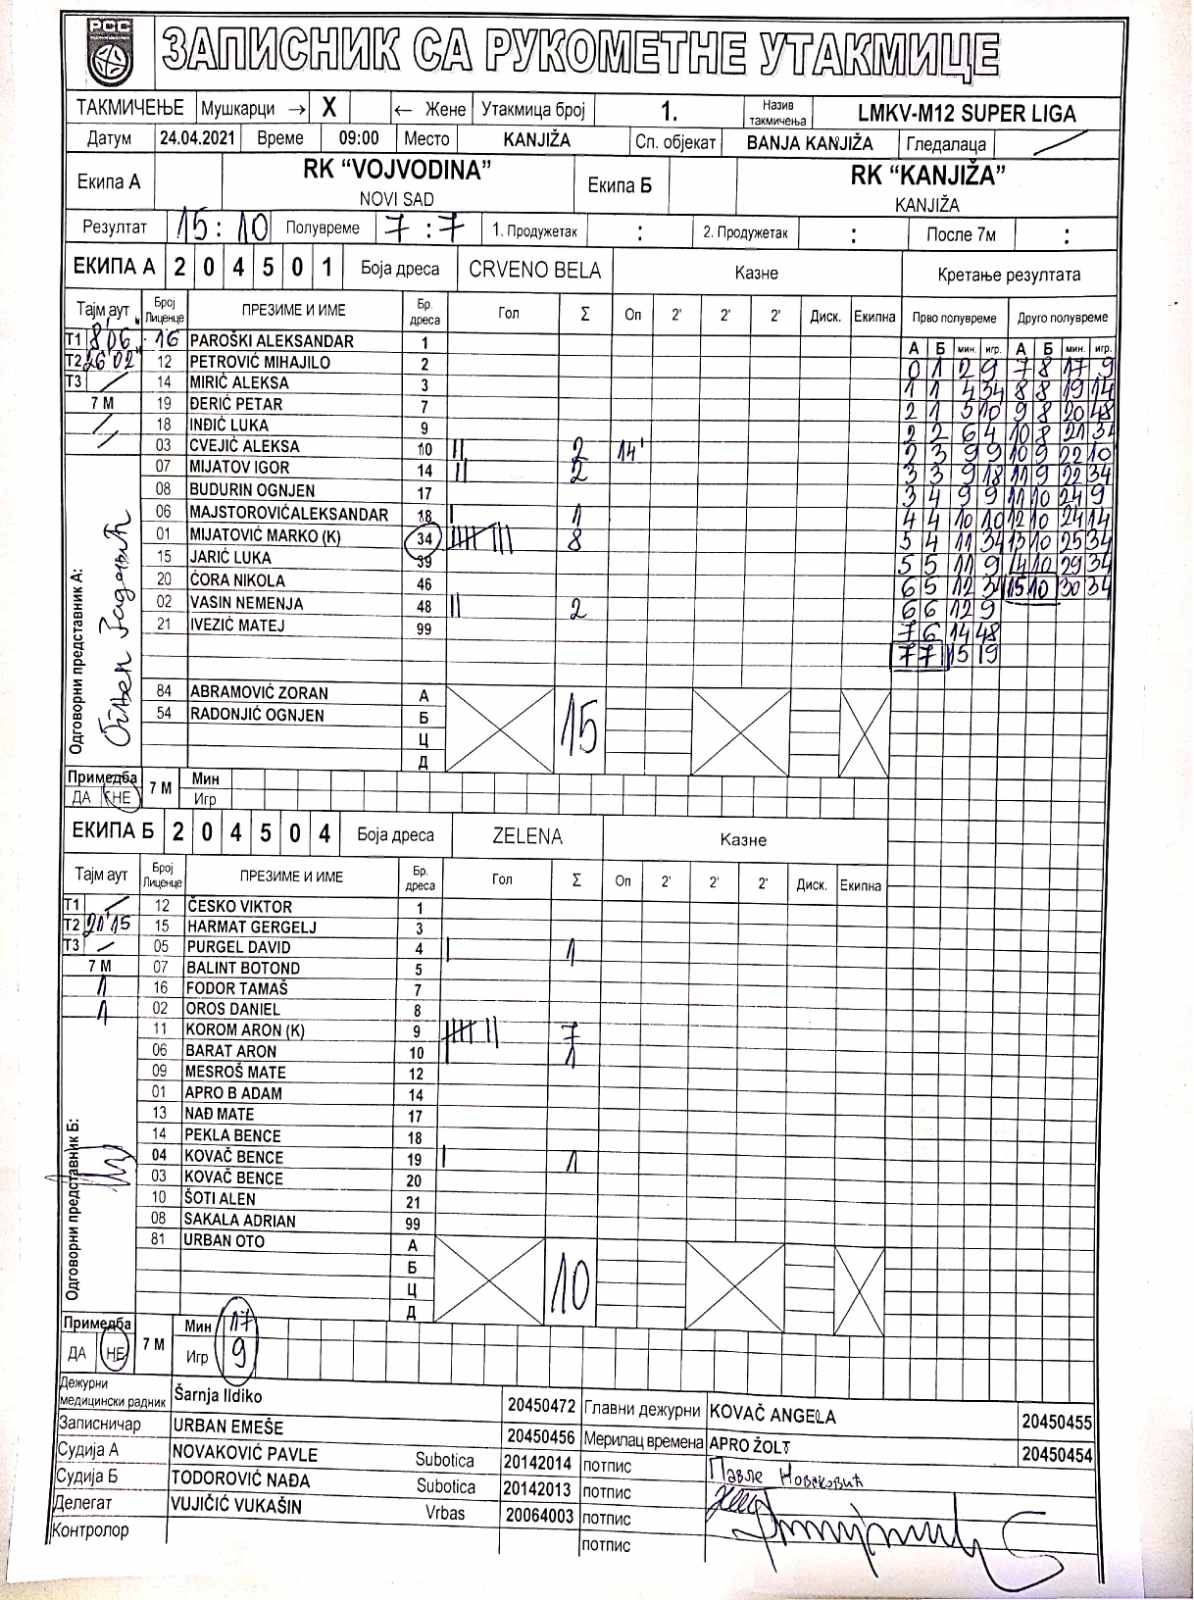 РСС
ЗАПИСНИК СА РУКОМЕТНЕ УТАКМИЦЕ
ТАКМИЧЕЊЕ Мушкарци → X ← Жене Утакмица број 1. Назив такмичења LMKV-M12 SUPER LIGA
Датум 24.04.2021 Време 09:00 Место KANJIŽA Сп. објекат BANJA KANJIŽA Гледалаца
Екипа А RK “VOJVODINA” NOVI SAD Екипа Б RK “KANJIŽA” KANJIŽA
Резултат 15:10 Полувреме 7:7 1. Продужетак : 2. Продужетак : После 7м :
ЕКИПА А 2 0 4 5 0 1 Боја дреса CRVENO BELA Казне Кретање резултата
Тајм аут Број Лиценце ПРЕЗИМЕ И ИМЕ Бр. дреса Гол Σ Оп 2' 2' 2' Диск. Екипна Прво полувреме Друго полувреме
А Б мин. игр. А Б мин. игр.
Т1 8,06 16 PAROŠKI ALEKSANDAR 1
Т2 26'02" 12 PETROVIĆ MIHAJLO 2 0 1 2 9 7 8 17 9
Т3 14 MIRIĆ ALEKSA 3 1 1 4 34 8 8 19 14
7 М 19 ĐERIĆ PETAR 7 2 1 5 10 9 8 20 48
18 INĐIĆ LUKA 9 2 2 6 4 10 8 21 34
03 CVEJIĆ ALEKSA 10 II 2 14' 2 3 9 9 10 9 22 10
07 MIJATOV IGOR 14 II 2 3 3 9 18 11 9 22 34
08 BUDURIN OGNJEN 17 3 4 9 9 11 10 24 9
06 MAJSTOROVIĆALEKSANDAR 18 I 1 4 4 10 10 12 10 24 14
01 MIJATOVIĆ MARKO (K) 34 IIIII III 8 5 4 11 34 13 10 25 34
15 JARIĆ LUKA 39 5 5 11 9 14 10 29 34
20 ĆORA NIKOLA 46 6 5 12 34 15 10 30 34
02 VASIN NEMENJA 48 II 2 6 6 12 9
21 IVEZIĆ MATEJ 99 7 6 14 48
7 7 15 19
Одговорни представник А:
84 ABRAMOVIĆ ZORAN А 15
54 RADONJIĆ OGNJEN Б
Ц
Д
Примедба ДА НЕ 7 М Мин
Игр
ЕКИПА Б 2 0 4 5 0 4 Боја дреса ZELENA Казне
Тајм аут Број Лиценце ПРЕЗИМЕ И ИМЕ Бр. дреса Гол Σ Оп 2' 2' 2' Диск. Екипна
Т1 12 ČESKO VIKTOR 1
Т2 21'15 15 HARMAT GERGELJ 3
Т3 05 PURGEL DAVID 4 I 1
7 М 07 BALINT BOTOND 5
1 16 FODOR TAMAŠ 7
1 02 OROS DANIEL 8
11 KOROM ARON (K) 9 IIIII II 7
06 BARAT ARON 10 I 1
09 MESROŠ MATE 12
01 APRO B ADAM 14
13 NAĐ MATE 17
14 PEKLA BENCE 18
04 KOVAČ BENCE 19 I 1
03 KOVAČ BENCE 20
10 ŠOTI ALEN 21
08 SAKALA ADRIAN 99
Одговорни представник Б:
81 URBAN OTO А 10
Б
Ц
Д
Примедба ДА НЕ 7 М Мин 17
Игр 9
Дежурни медицински радник Šarnja Ildiko 20450472 Главни дежурни KOVAČ ANGELA 20450455
Записничар URBAN EMEŠE 20450456 Мерилац времена APRO ŽOLT 20450454
Судија А NOVAKOVIĆ PAVLE Subotica 20142014 потпис Павле Новаковић
Судија Б TODOROVIĆ NAĐA Subotica 20142013 потпис
Делегат VUJIČIĆ VUKAŠIN Vrbas 20064003 потпис
Контролор потпис